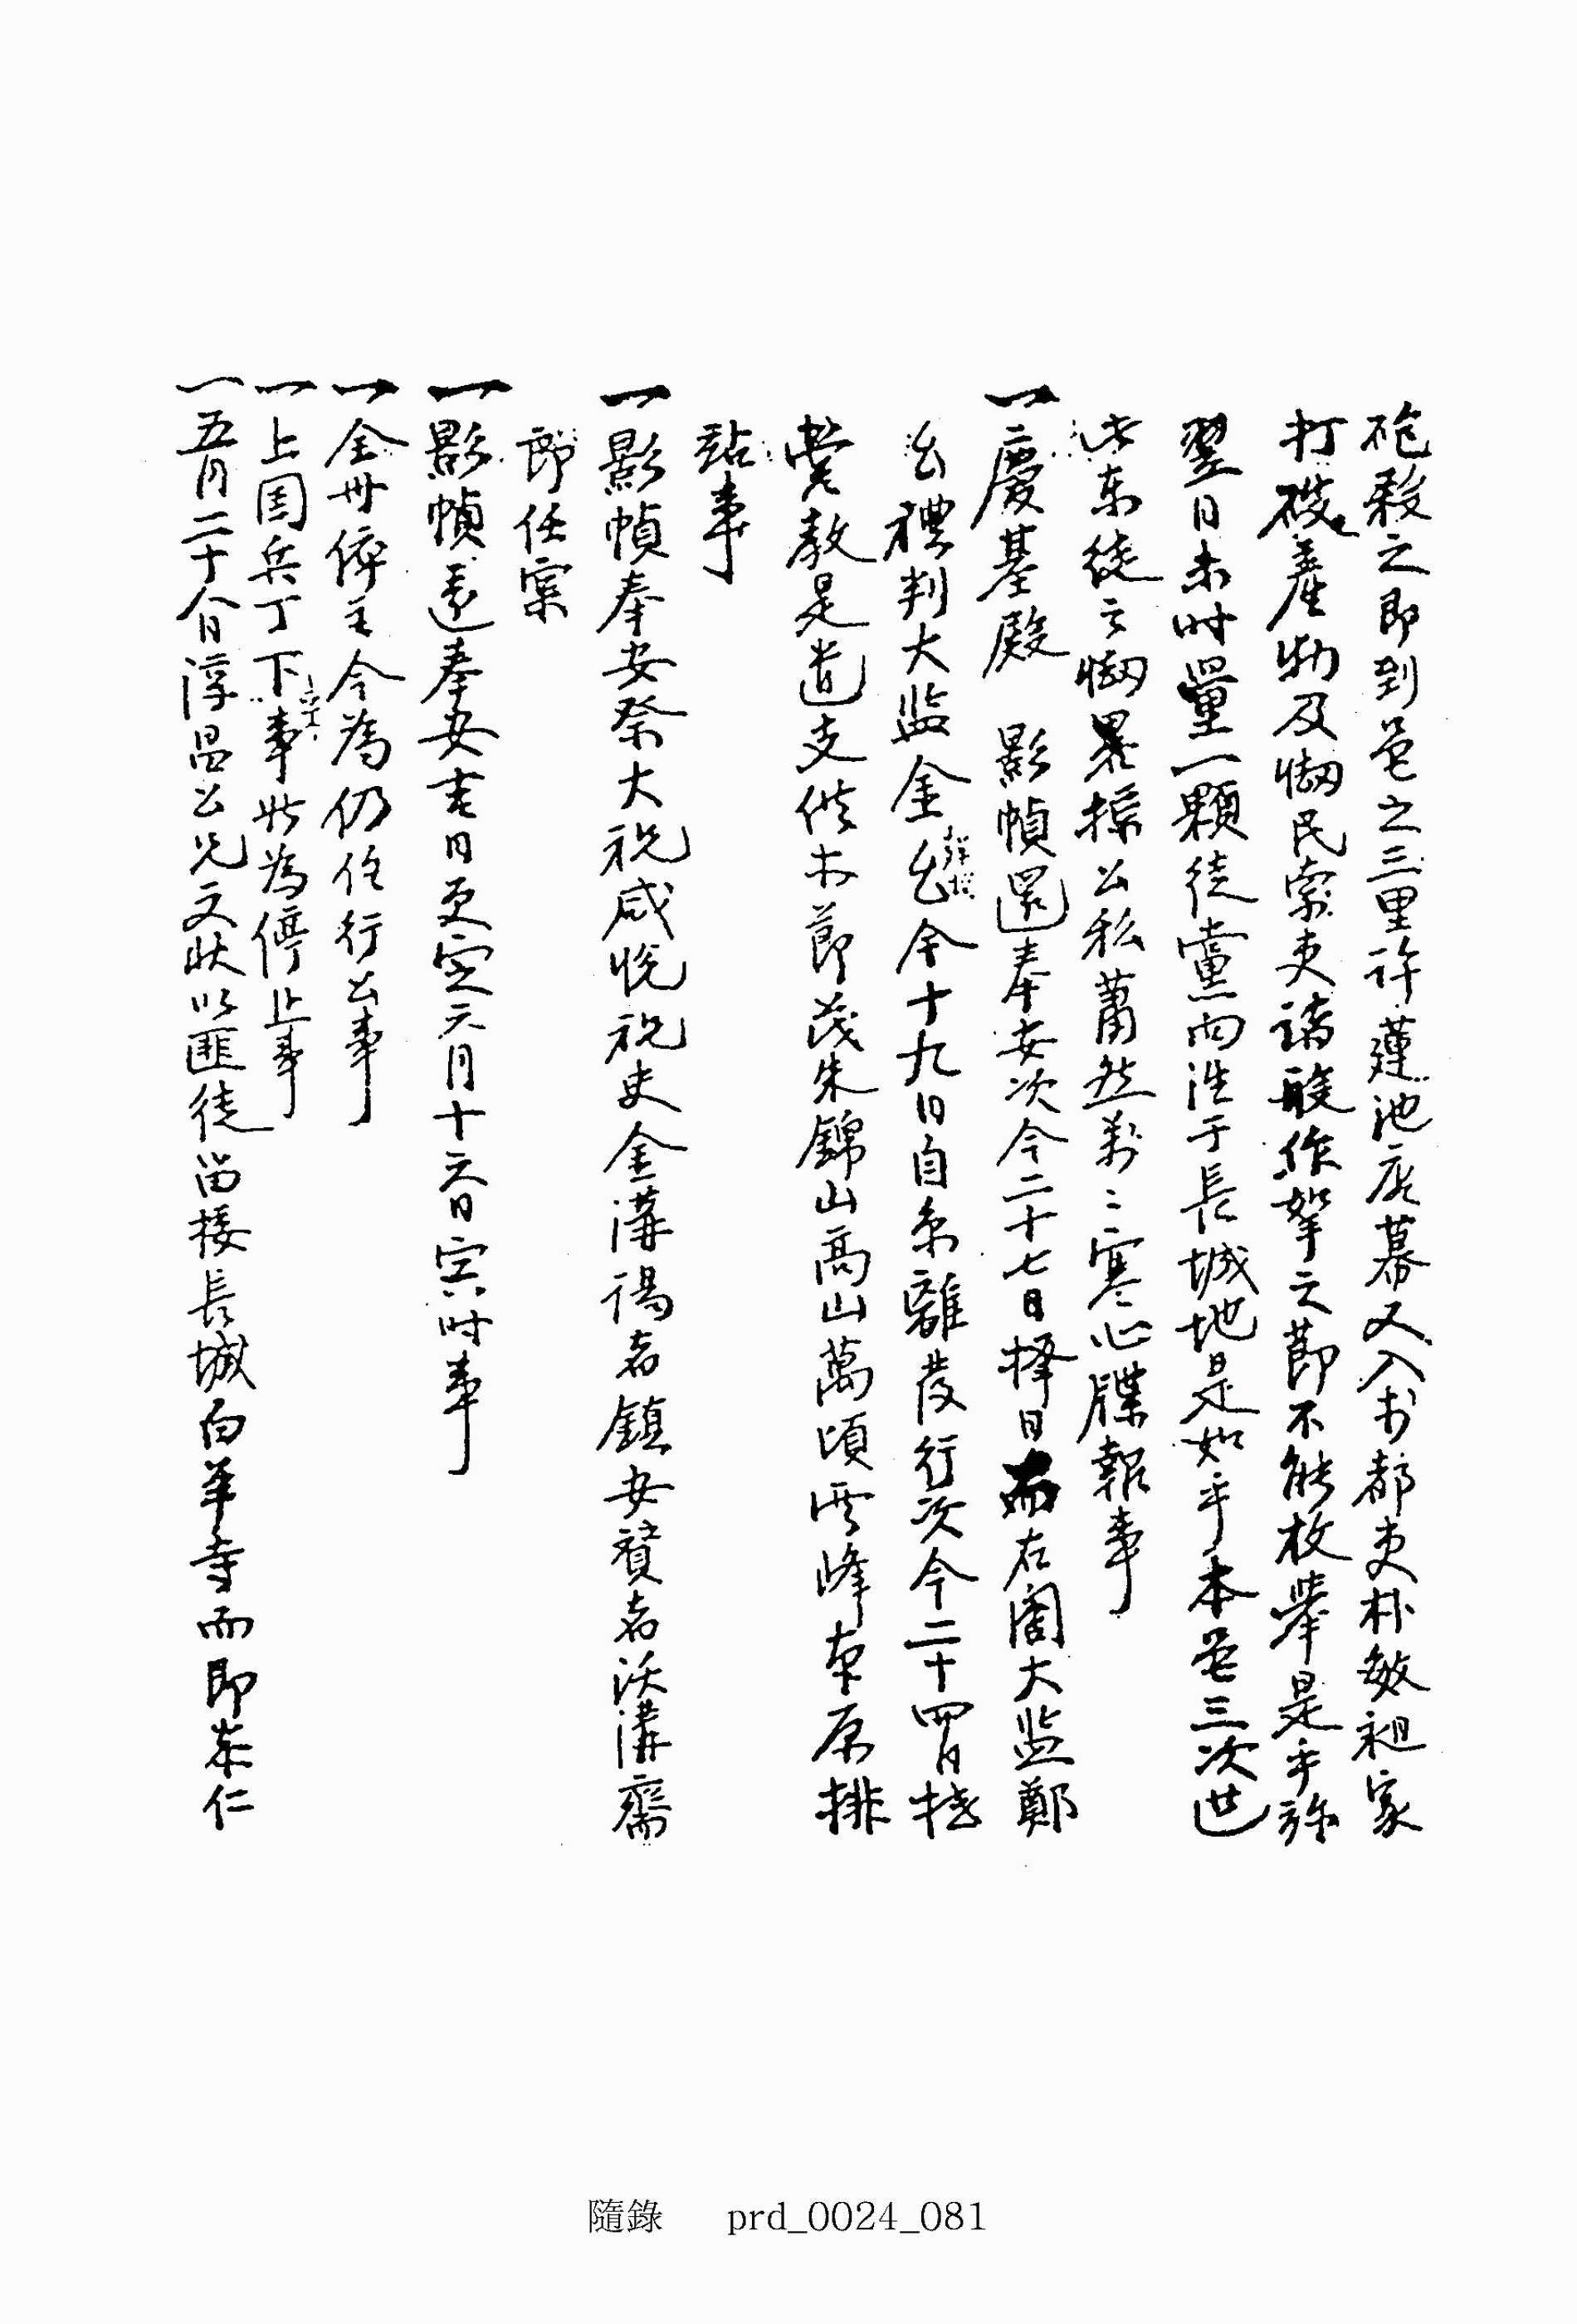 砲殺之即到邑之三里許蓮池店幕又入於都吏朴敏祖家
打破產物及惻民索吏諸般作拏之節不能枚擧是乎弥
翌日未時量一顆徒黨向往于長城地是如乎本邑三次
此東徒云惻畧操公私蕭然 寒心牒報事
一慶基殿 影幀還奉安次今二十七日擇日而在闇大監鄭
公禮判大監金 今十九日自京離發行次今二十四日
敎是道支供木節茂朱錦山高山萬頃雲峰本原排
站事
一影幀奉安祭大祝咸悅祝史金溝謁者鎮安贊者沃溝齋
郎任實
一影幀還奉安吉日更定六月十六日 時事
一全州倅主今爲仍任行公事
一上國兵丁下事 爲停止事
一五月二十 日淳昌公兄文狀以匪徒留接長城白羊寺而即泰仁
隨錄 prd_0024_081